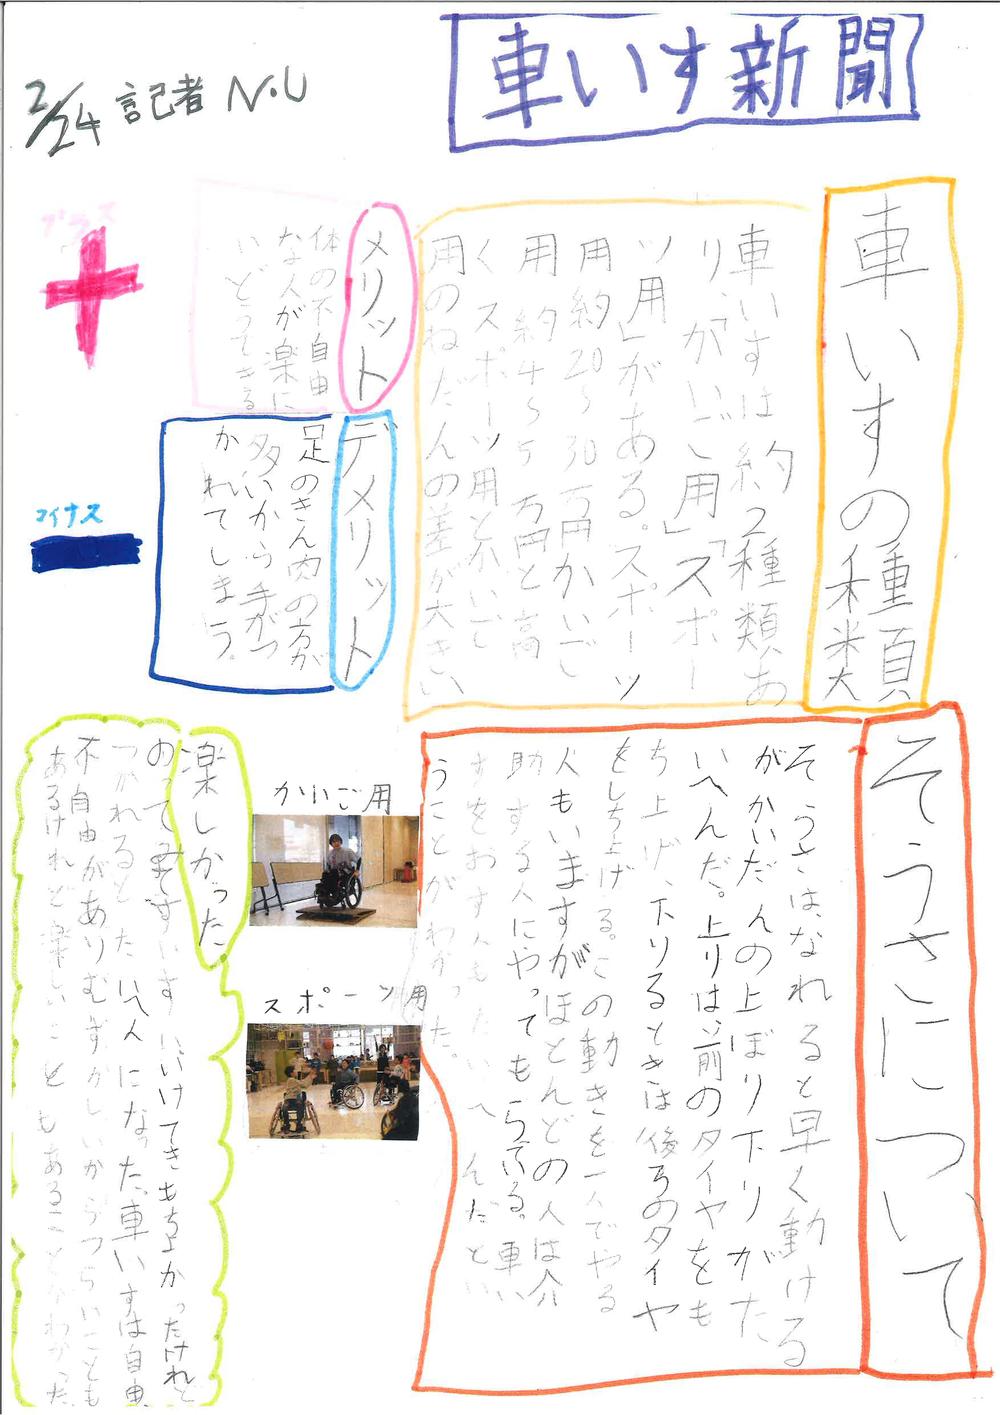 車いす新聞
2/24 記者 N.U
車いすの種類
車いすは約2種類あ
り、「かいご用」「スポー
ツ用」がある。スポーツ
用約20〜30万円かいご
用約4〜5万円と高
く スポーツ用とかいご
用のねだんの差が大きい
メリット
体の不自由
な人が楽に
いどうできる
デメリット
足のきん肉の方が
多いから手がつ
かれてしまう。
プラス
+
マイナス
ー
そうさについて
そうさは、なれると早く動ける
がかいだんの上ぼり下りがた
いへんだ。上りは前のタイヤをも
ち上げ、下りるときは後ろのタイヤ
をもち上げる。この動きを一人でやる
人もいますがほとんどの人は介
助する人にやってもらっている。車い
すをおす人もたいへんだとい
うことがわかった。
かいご用
スポーツ用
楽しかった
のってみて
きもちよかったけれど
つかれるとたいへんになった、車いすは自由
不自由がありむずかしいからつらいことも
あるけれど楽しいこともあることがわかった